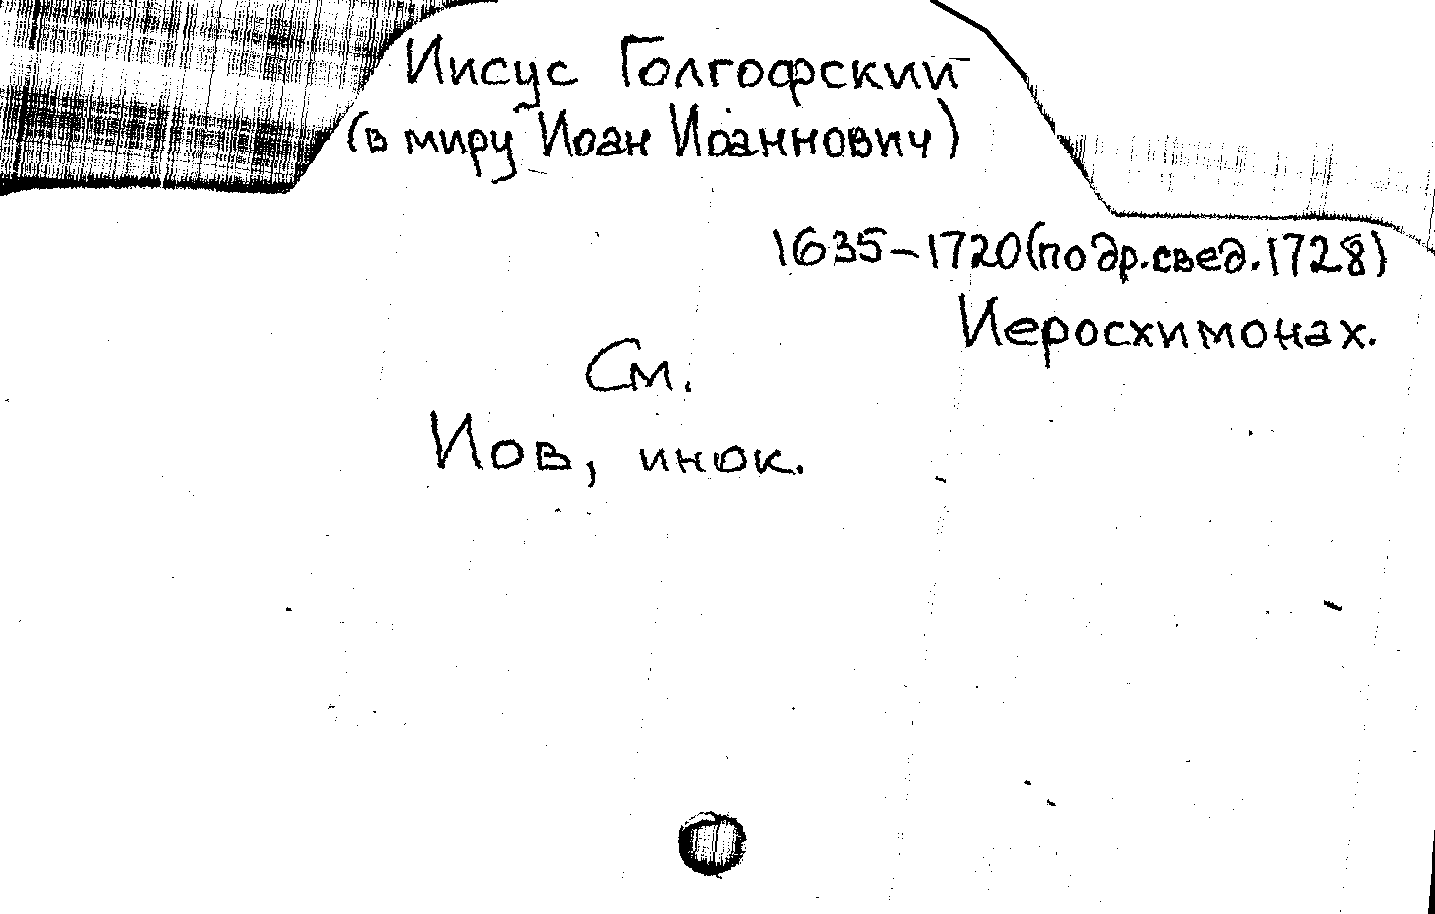 Иисус Голгофский
(в миру Иоан Иоаннович)
1635-1720(по др.свед.1728)
Иеросхимонах.
См.
Иов, инок.